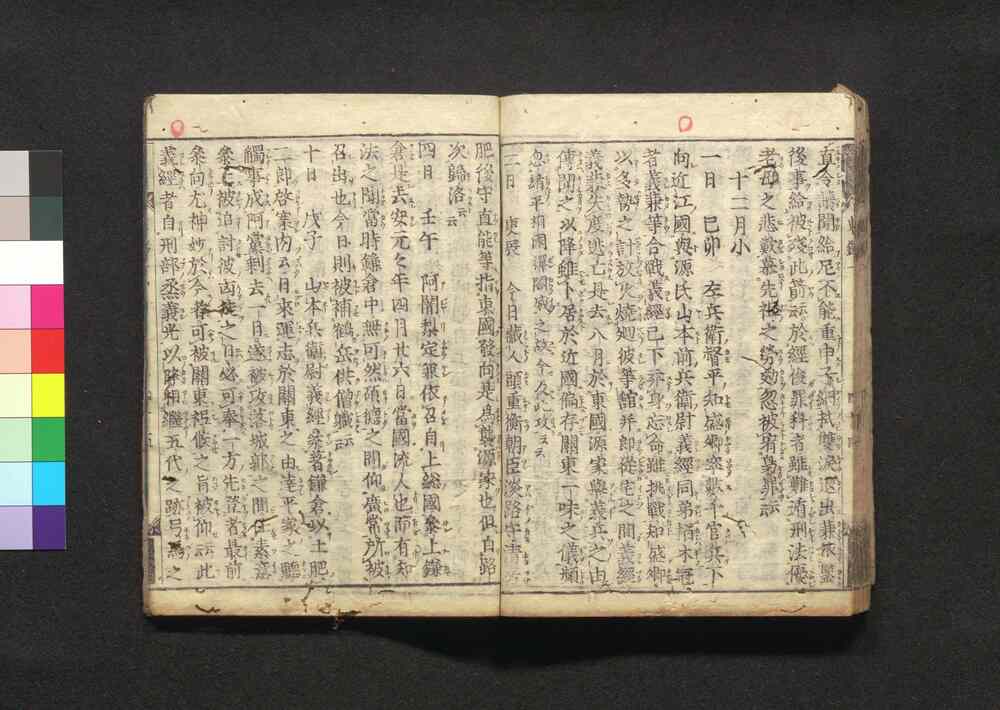 後事給被殘此箭云云於經俊罪科者雖難遁刑法優
老母之悲歎募先祖之勞効忽被宥梟罪云云
十二月小
一日 己卯 左兵衛督平知盛卿率數千官兵下
向近江國與源氏山本前兵衛尉義經同弟柏木冠
者義兼等合戰義經已下弃身忘命雖挑戰知盛卿
以多勢之計放火燒廻彼等館并郎從宅之間義經
義兼失度逃亡是去八月於東國源家舉義兵之由
傳聞之以降雖卜居於近國偏存關東一味之儀頻
忽緒平相國禪閤威之故今及此攻云云
二日 庚辰 今日藏人頭重衡朝臣淡路守清房
肥後守貞能等指東國發向是爲襲源家也但自路
次歸洛云云
四日 壬午 阿闍梨定兼依召自上総國參上鎌
倉是去安元元年四月廿六日當國流人也而有知
法之聞當時鎌倉中無可然碩德之間仰廣常所被
召出也今日則被補鶴岳供僧職云云
十日 戊子 山本兵衛尉義經參著鎌倉以土肥
二郎啓案内云日來運志於關東之由達平家之聽
觸事成阿黨剩去一日遂被攻落城郭之間任素意
參上被追討彼凶徒之日必可奉一方先登者最前
參向尤神妙於今者可被關東祗候之旨被仰云云此
義經者自刑部丞義光以降相繼五代之跡弓馬之